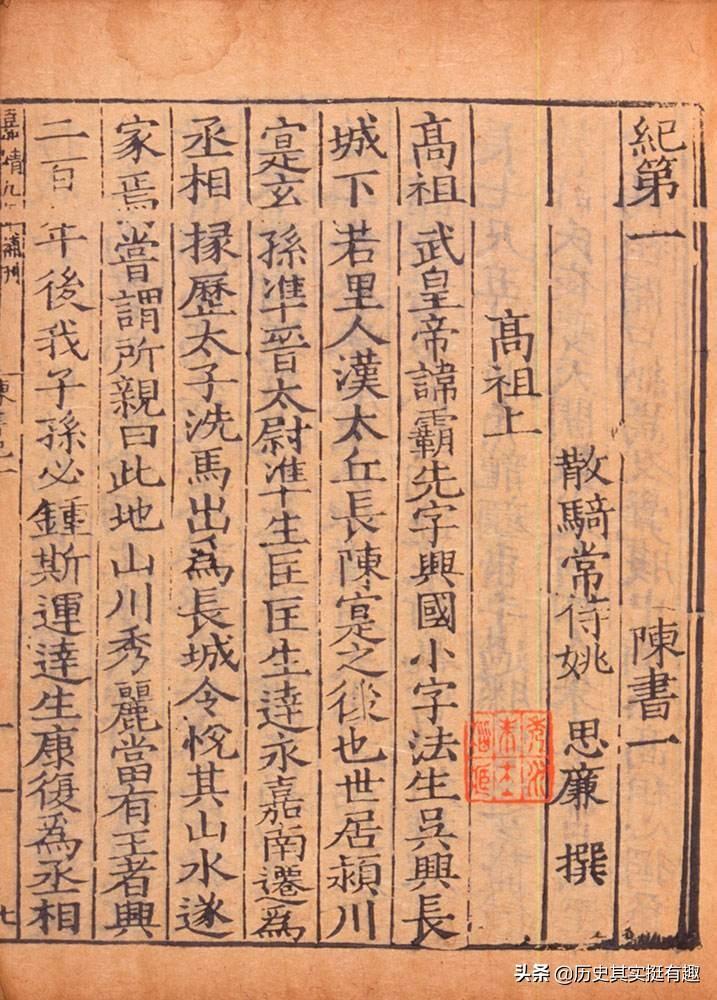 紀第一 陳書一
散騎常侍姚 思廉 撰
高祖上
高祖武皇帝諱霸先字興國小字法生吳興長
城下若里人漢太丘長陳寔之後也世居潁川
寔玄孫準晉太尉準生匡匡生達永嘉南遷爲
丞相掾歷太子洗馬出爲長城令悅其山水遂
家焉嘗謂所親曰此地山川秀麗當有王者興
二百年後我子孫必鍾斯運達生康復爲丞相
嘉靖九年補刊
七
頭条 @历史其实挺有趣